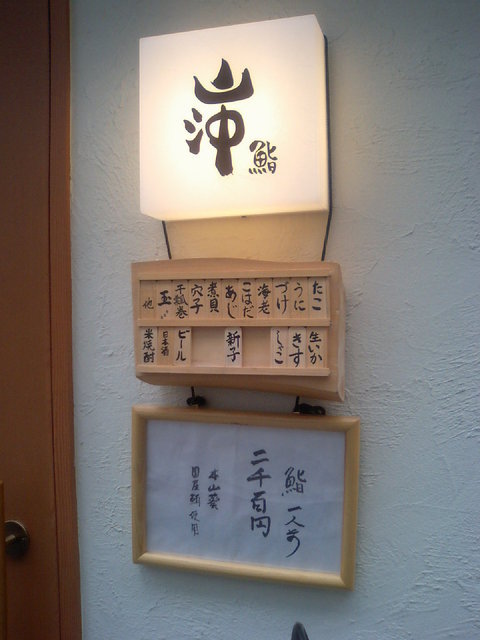 山沖
鮨
たこ
うに
づけ
海老
こはだ
あじ
煮貝
穴子
干瓢巻
玉
他
生いか
きす
しゃこ
新子
ビール
日本酒
米焼酎
鮨 一人前
二千百円
本山葵
国産 使用